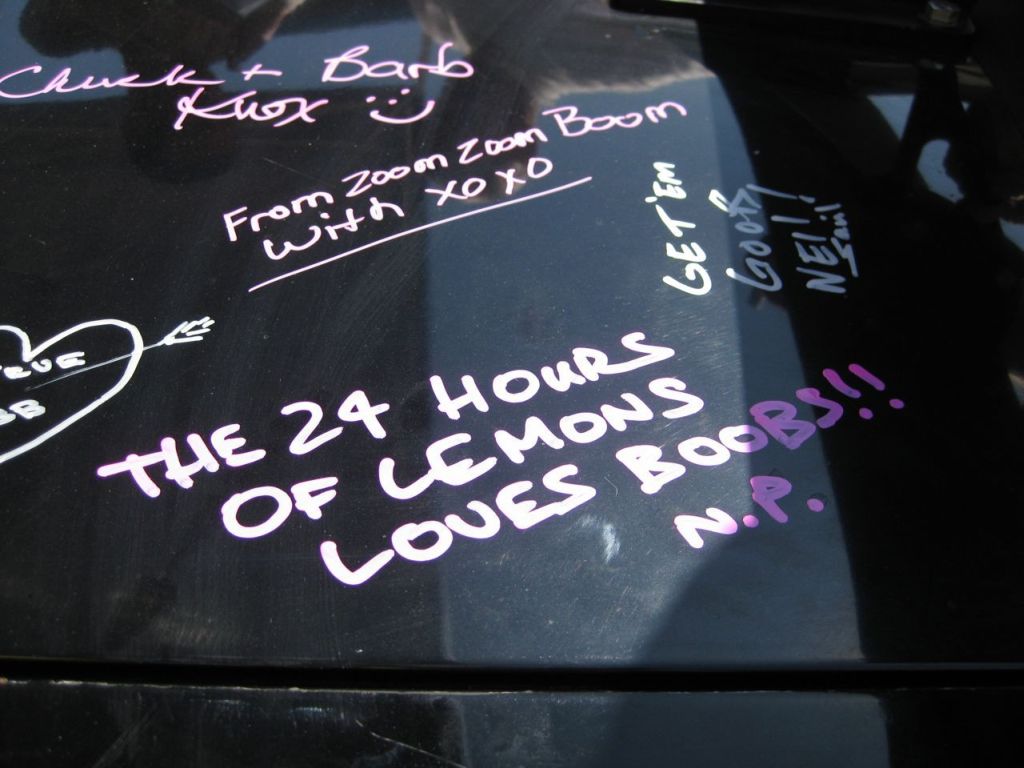 Chuck + Barb
Knox
From Zoom Zoom Boom
With XOXO
GET 'EM
GOOD!
NEIL!
THE 24 HOURS
OF LEMONS
LOVES BOOBS!!
N.P.